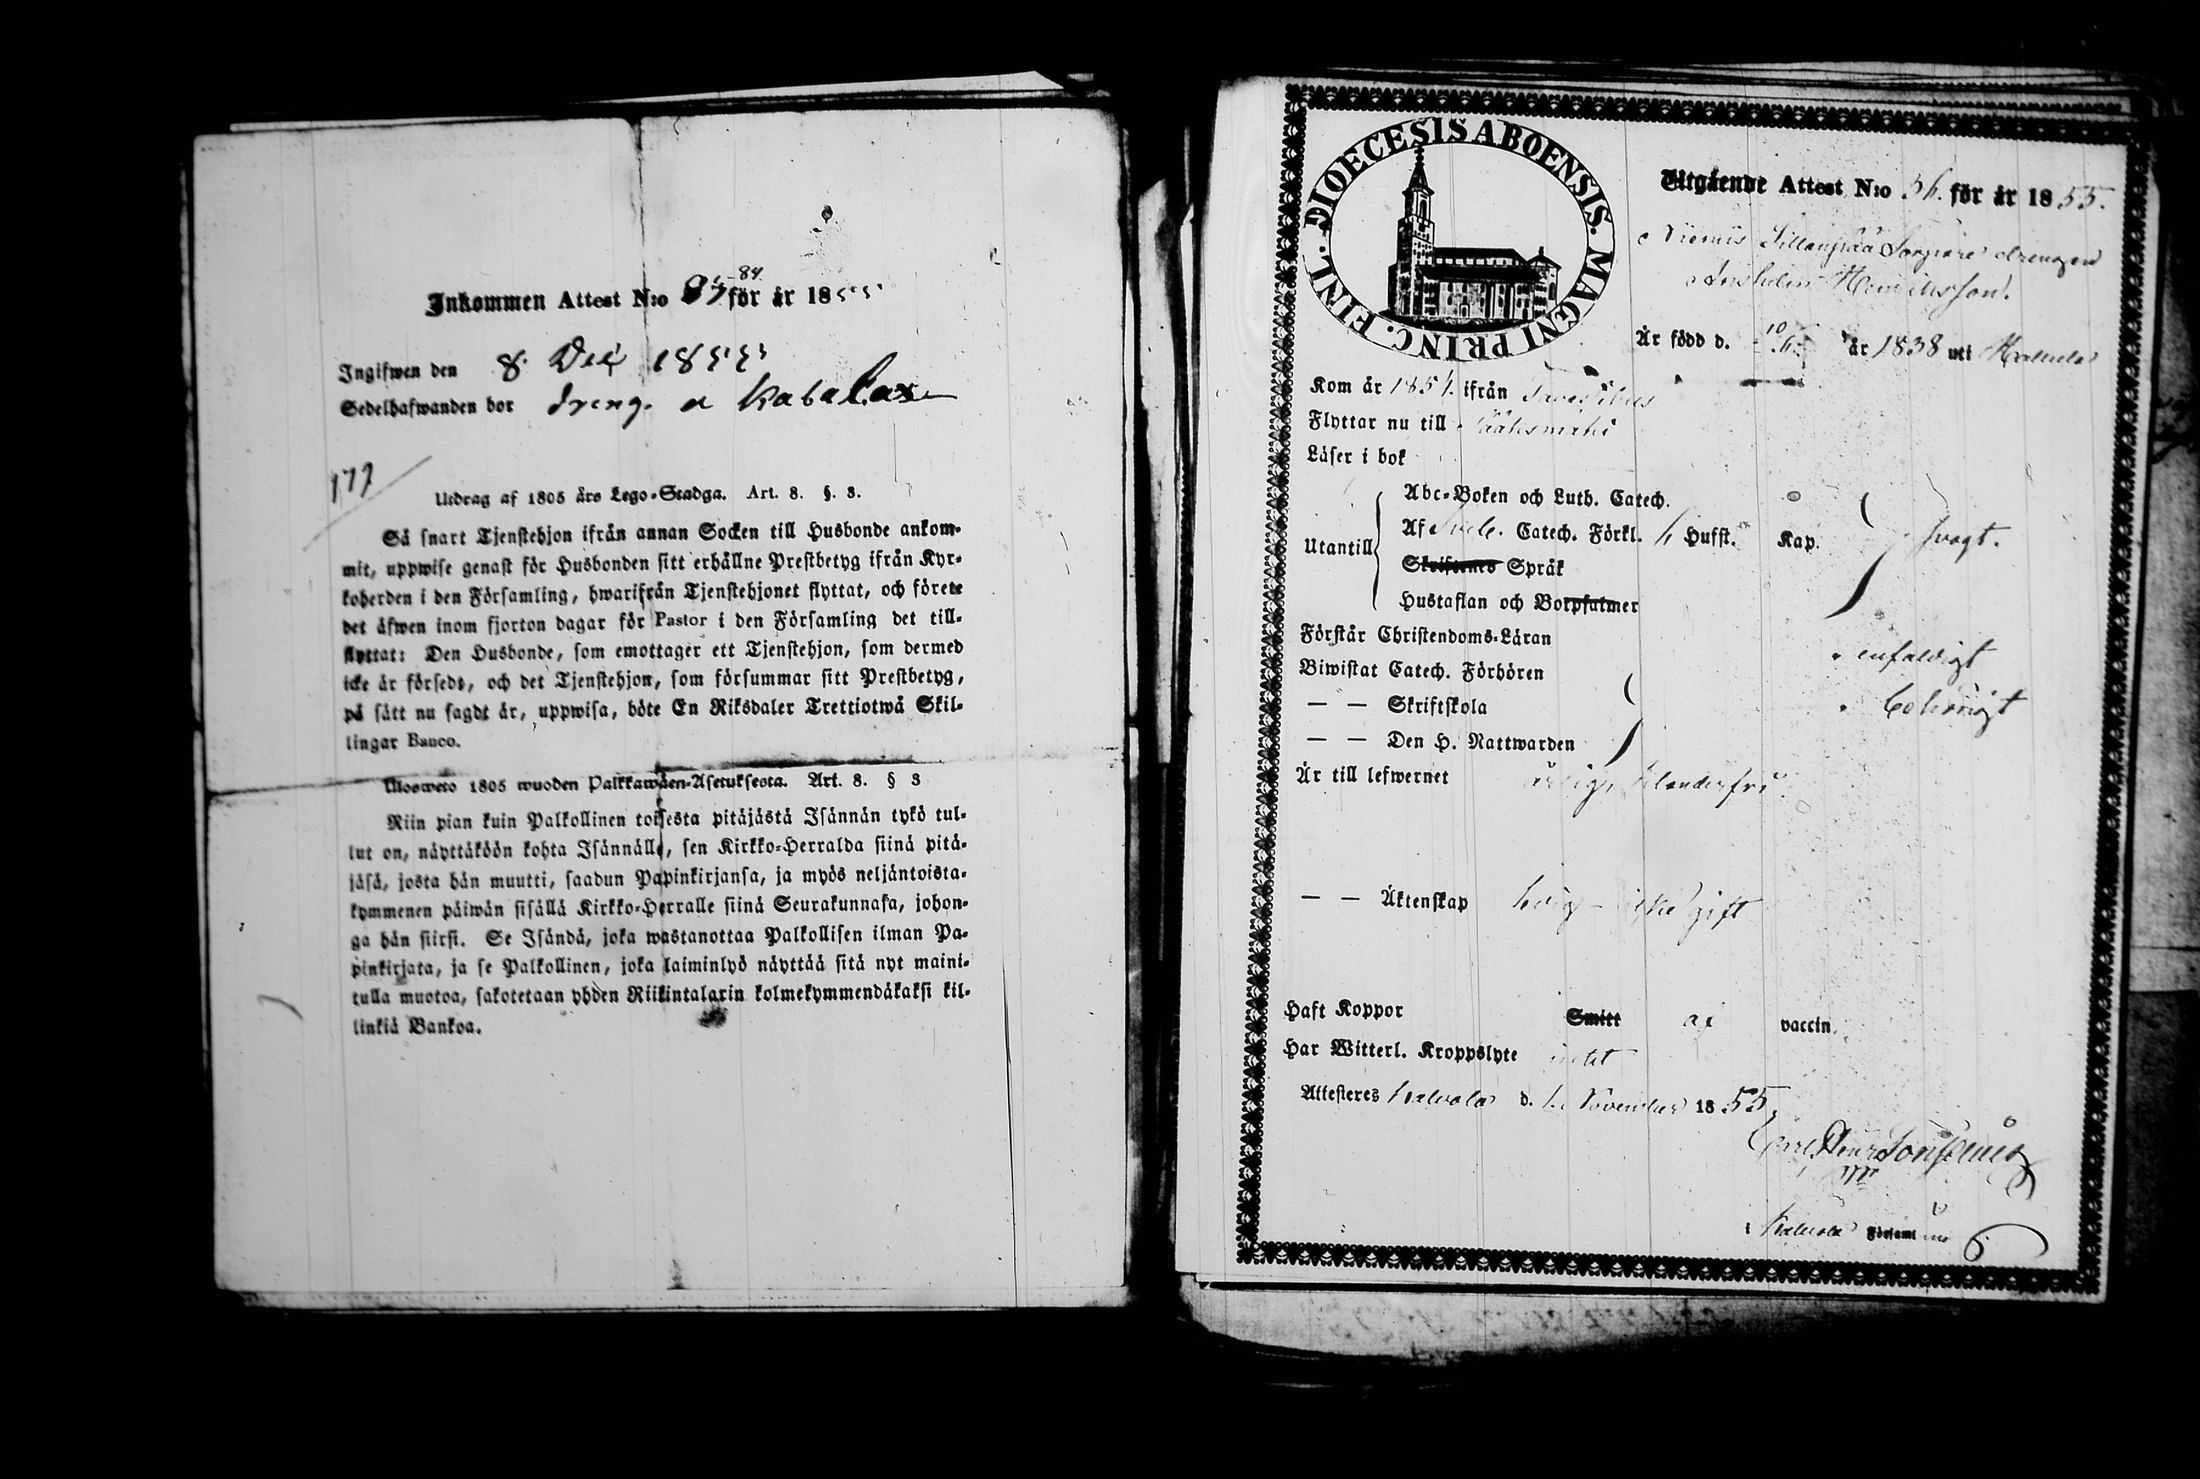 Inkommen Attest N:o 83-84 för år 1855
Ingifwen den 8. Dec 1855
Sedelhafwanden bor dreng. a kabalax
177
Utdrag af 1805 års Lego-Stadga. Art. 8. §. 3.
Så snart Tjenstehjon ifrån annan Socken till Husbonde ankom-
mit, uppwise genast för Husbonden sitt erhållne Prestbetyg ifrån Kyr-
koherden i den Församling, hwarifrån Tjenstehjonet flyttat, och förete
det äfwen inom fjorton dagar för Pastor i den Församling det till-
flyttat: Den Husbonde, som emottager ett Tjenstehjon, som dermed
icke är försedt, och det Tjenstehjon, som försummar sitt Prestbetyg,
på sätt nu sagdt är, uppwisa, böte En Riksdaler Trettiotwå Skil-
lingar Banco.
Ulosweto 1805 wuoden Palkkawäen-Asetuksesta. Art. 8. § 3
Niin pian kuin Palkollinen toisesta pitäjästä Isännän tykö tul-
lut on, näyttäköön kohta Isännälle, sen Kirkko-Herralda siinä pitä-
jäsä, josta hän muutti, saadun Papinkirjansa, ja myös neljäntoista-
kymmenen päiwän sisällä Kirkko-Herralle siinä Seurakunnasa, johon-
ga hän siirsi. Se Isändä, joka wastanottaa Palkollisen ilman Pa-
pinkirjata, ja se Palkollinen, joka laiminlyö näyttää sitä nyt maini-
tulla muotoa, sakotetaan yhden Riikintalarin kolmekymmendäkaksi kil-
linkiä Bankoa.
DIOECESIS ABOENSIS. MAGNI PRINC. FINL.
Utgående Attest N:o 56. för år 1855.
Niemis Sillanpää drengen
Henriksson.
Är född d. 10/6 år 1838 uti Kalvola
Kom år 1854 ifrån Tavastehus
Flyttar nu till Sääksmäki
Läser i bok
Abc-Boken och Luth. Catech.
Utantill Af Sveb. Catech. Förkl. Hufst. Kap. svagt.
Skriftenes Språk
Hustaflan och Botpsalmer
Förstår Christendoms-Läran enfaldigt
Biwistat Catech. Förhören
— — Skriftskola behörigt
— — Den H. Nattwarden
Är till lefwernet ärlig, klanderfri
— — Äktenskap ledig - icke gift
Haft Koppor Smitt af vaccin.
Har Witterl. Kroppslyte intet
Attesteres Kalvola d. November 1855,
Kalvola Församl